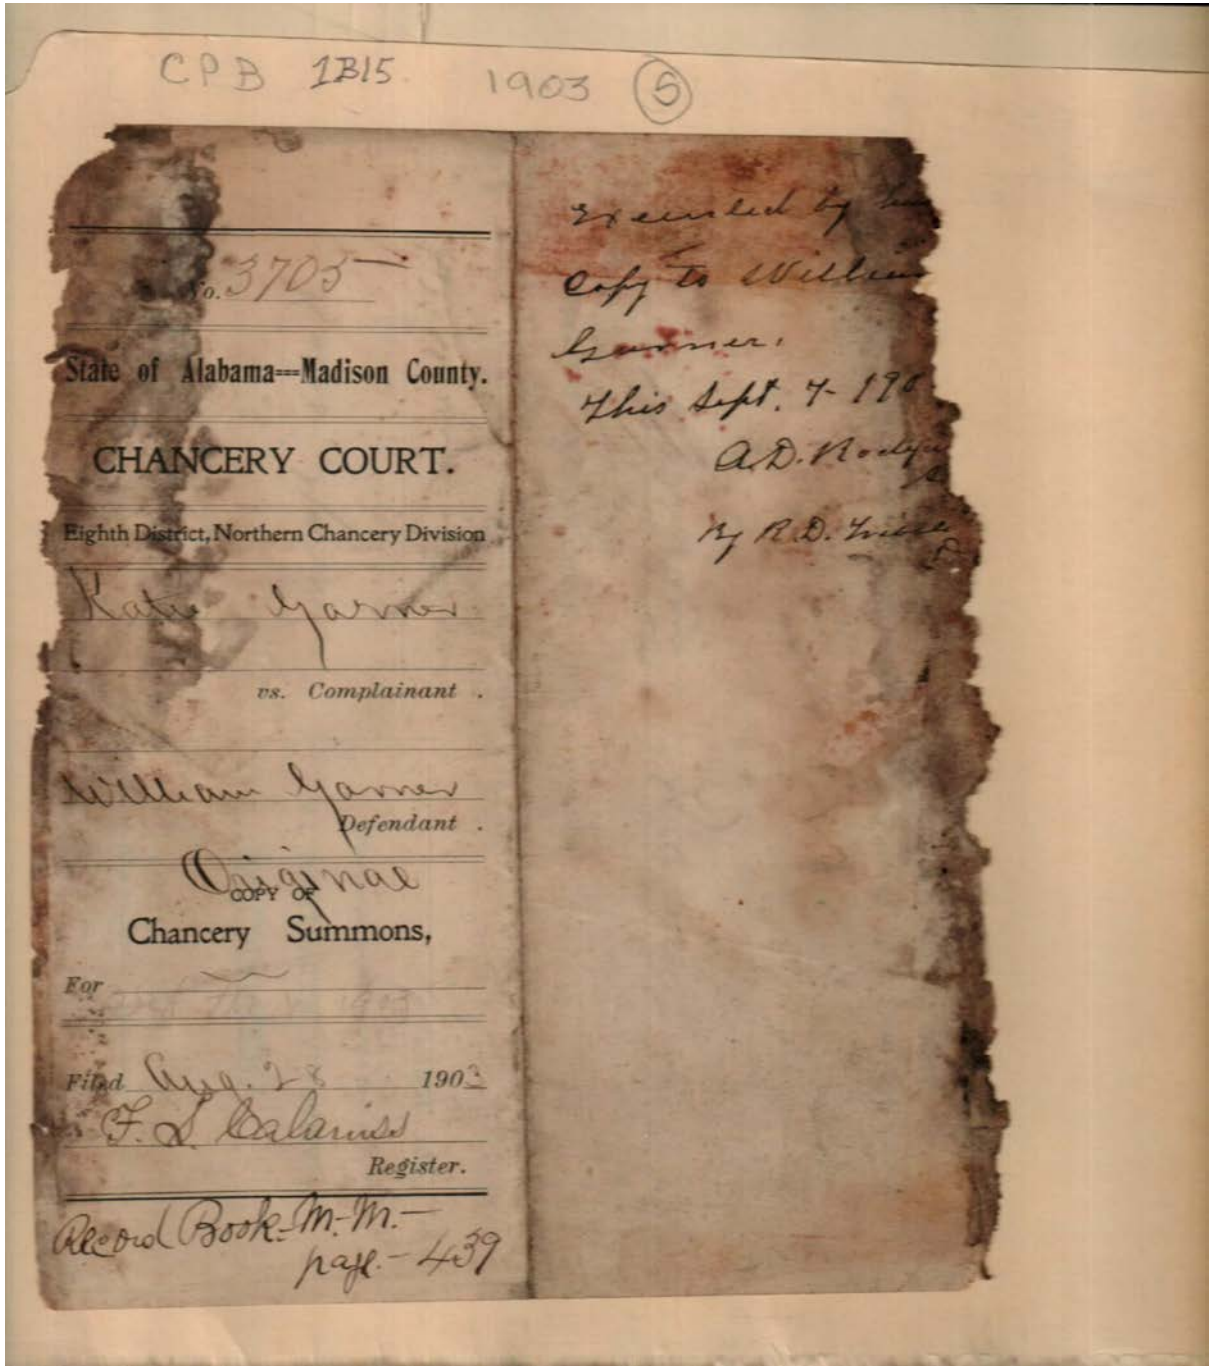 CPB 1B15. 1903 5
No. 3705
State of Alabama---Madison County.
CHANCERY COURT.
Eighth District, Northern Chancery Division
Katie Garner
vs. Complainant .
William Garner
Defendant .
Original
COPY OF
Chancery Summons,
For
Filed Aug. 28 1903
F. S.
Register.
Record Book-M.-M.-
page.- 439
Executed by
Copy to William
Garner.
This Sept. 7- 190
A.D.
By R.D.